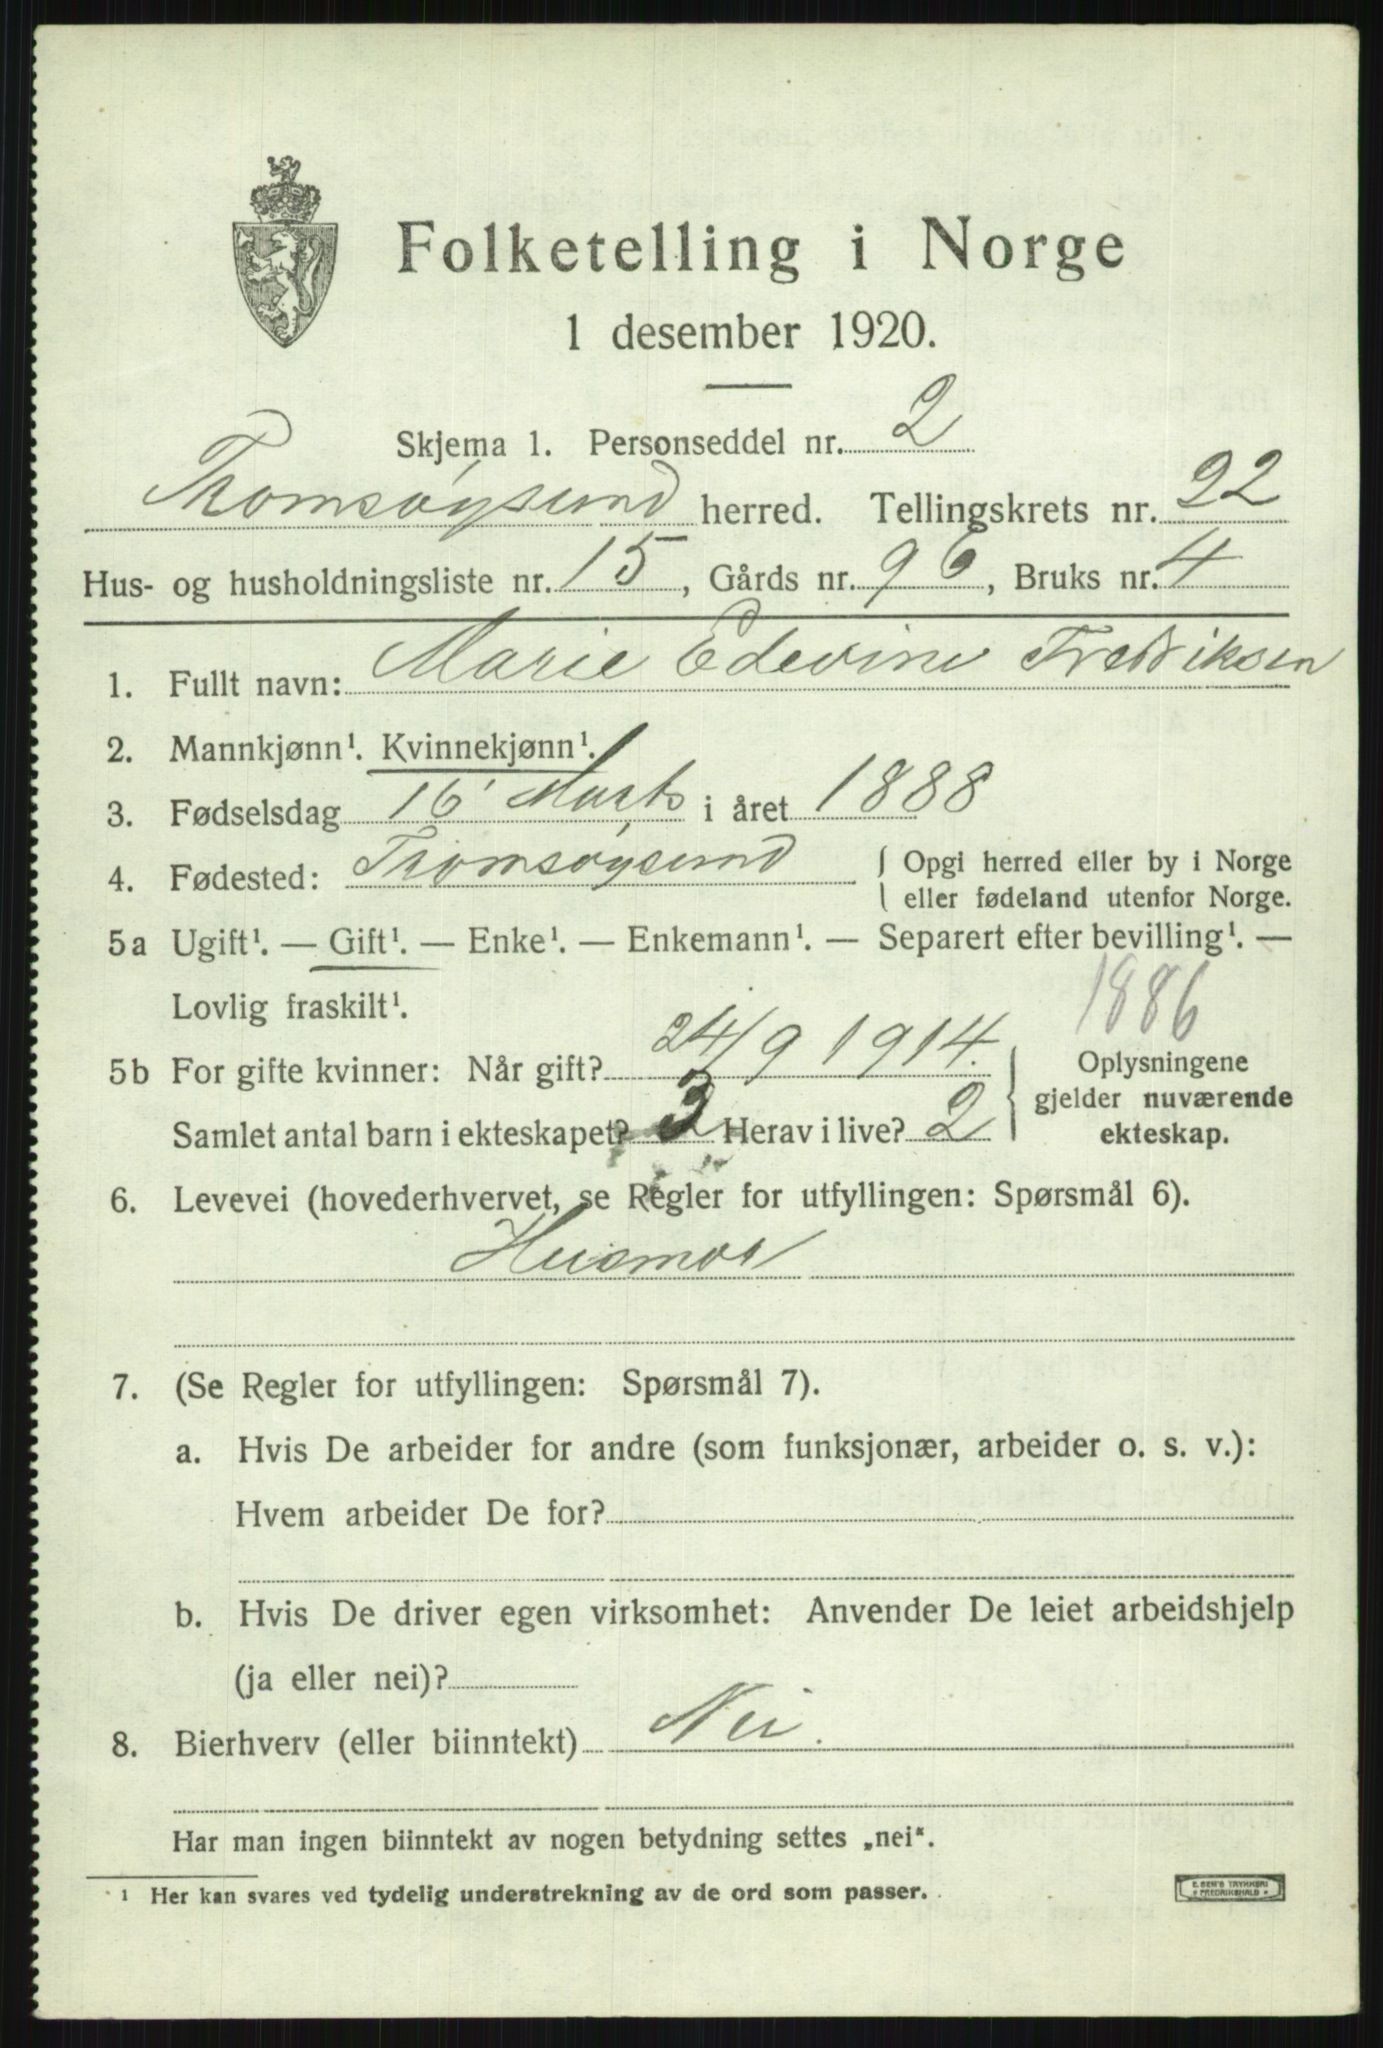 Folketelling i Norge
1 desember 1920.
Skjema 1. Personseddel nr. 2
Tromsøysund herred. Tellingskrets nr. 22
Hus- og husholdningsliste nr. 15, Gårds nr. 96, Bruks nr. 4
1. Fullt navn: Marie Edevine Fredriksen
2. Mannkjønn¹. Kvinnekjønn¹.
3. Fødselsdag 16 Marts i året 1888
4. Fødested: Tromsøysund { Opgi herred eller by i Norge
eller fødeland utenfor Norge.
5a Ugift¹. — Gift¹. — Enke¹. — Enkemann¹. — Separert efter bevilling¹. —
Lovlig fraskilt¹.
1886
5b For gifte kvinner: Når gift? 24/9 1914. } Oplysningene
gjelder nuværende
Samlet antal barn i ekteskapet? 3 Herav i live? 2 ekteskap.
6. Levevei (hovederhvervet, se Regler for utfyllingen: Spørsmål 6).
Husmor
7. (Se Regler for utfyllingen: Spørsmål 7).
a. Hvis De arbeider for andre (som funksjonær, arbeider o. s. v.):
Hvem arbeider De for?
b. Hvis De driver egen virksomhet: Anvender De leiet arbeidshjelp
(ja eller nei)?
8. Bierhverv (eller biinntekt) Nei.
Har man ingen biinntekt av nogen betydning settes „nei“.
¹ Her kan svares ved tydelig understrekning av de ord som passer.
E. SEM'S TRYKKERI
* FREDRIKSHALD *